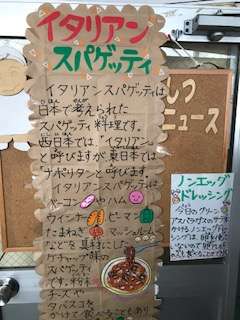 イタリアン
スパゲッティ
イタリアンスパゲッティは
にほん
日本で考えられた
スパゲッティ料理です。
西日本では"イタリアン"
と呼びますが東日本では
"ナポリタン"と呼びます。
イタリアンスパゲッティは
ベーコン やハム
ウインナー ピーマン
たまねぎ マッシュルーム
などを具材にした
ケチャップ味の
スパゲッティ
です。粉
チーズや
タバスコを
かけて食べることもあり
しつ
ニュース
ノンエッグ
ドレッシング
今日のグリーン
アスパラガスのサラダ